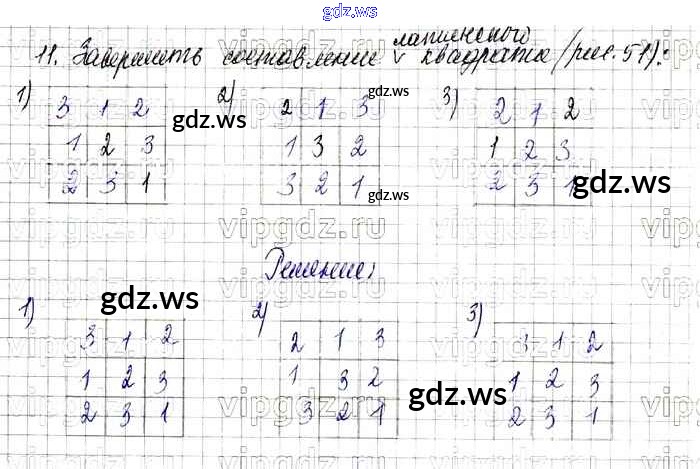 gdz.ws
11. Завершить составление латинского квадрата (рис. 51):
1) 3 1 2 2) 2 1 3 3) 2 1 2
1 2 3 1 3 2 1 2 3
2 3 1 3 2 1 2 3 1
gdz.ws gdz.ws gdz.ws
Решение:
1) 3 1 2 2) 2 1 3 3) 3 1 2
1 2 3 1 3 2 1 2 3
2 3 1 3 2 1 2 3 1
gdz.ws gdz.ws gdz.ws
vipgdz.ru